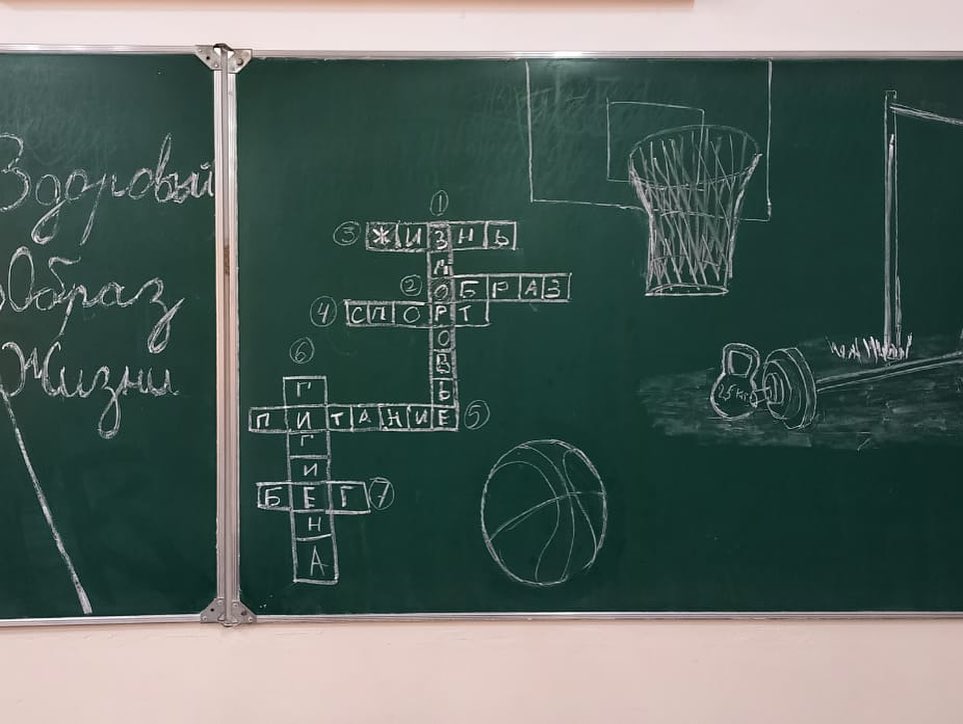 Здоровый
Образ
Жизни
1
ЗДОРОВЬЕ
3 ЖИЗНЬ
2 ОБРАЗ
4 СПОРТ
6
ГИГИЕНА
ПИТАНИЕ 5
БЕГ 7
кг